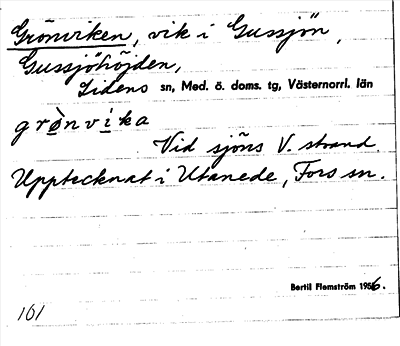 Grönviken, vik i Gussjön,
Gussjöhöjden,
Lidens sn, Med. ö. doms. tg, Västernorrl. län
grö̀nvika
Vid sjöns V. strand.
Upptecknat i Utanede, Fors sn.
Bertil Flemström 1956.
161